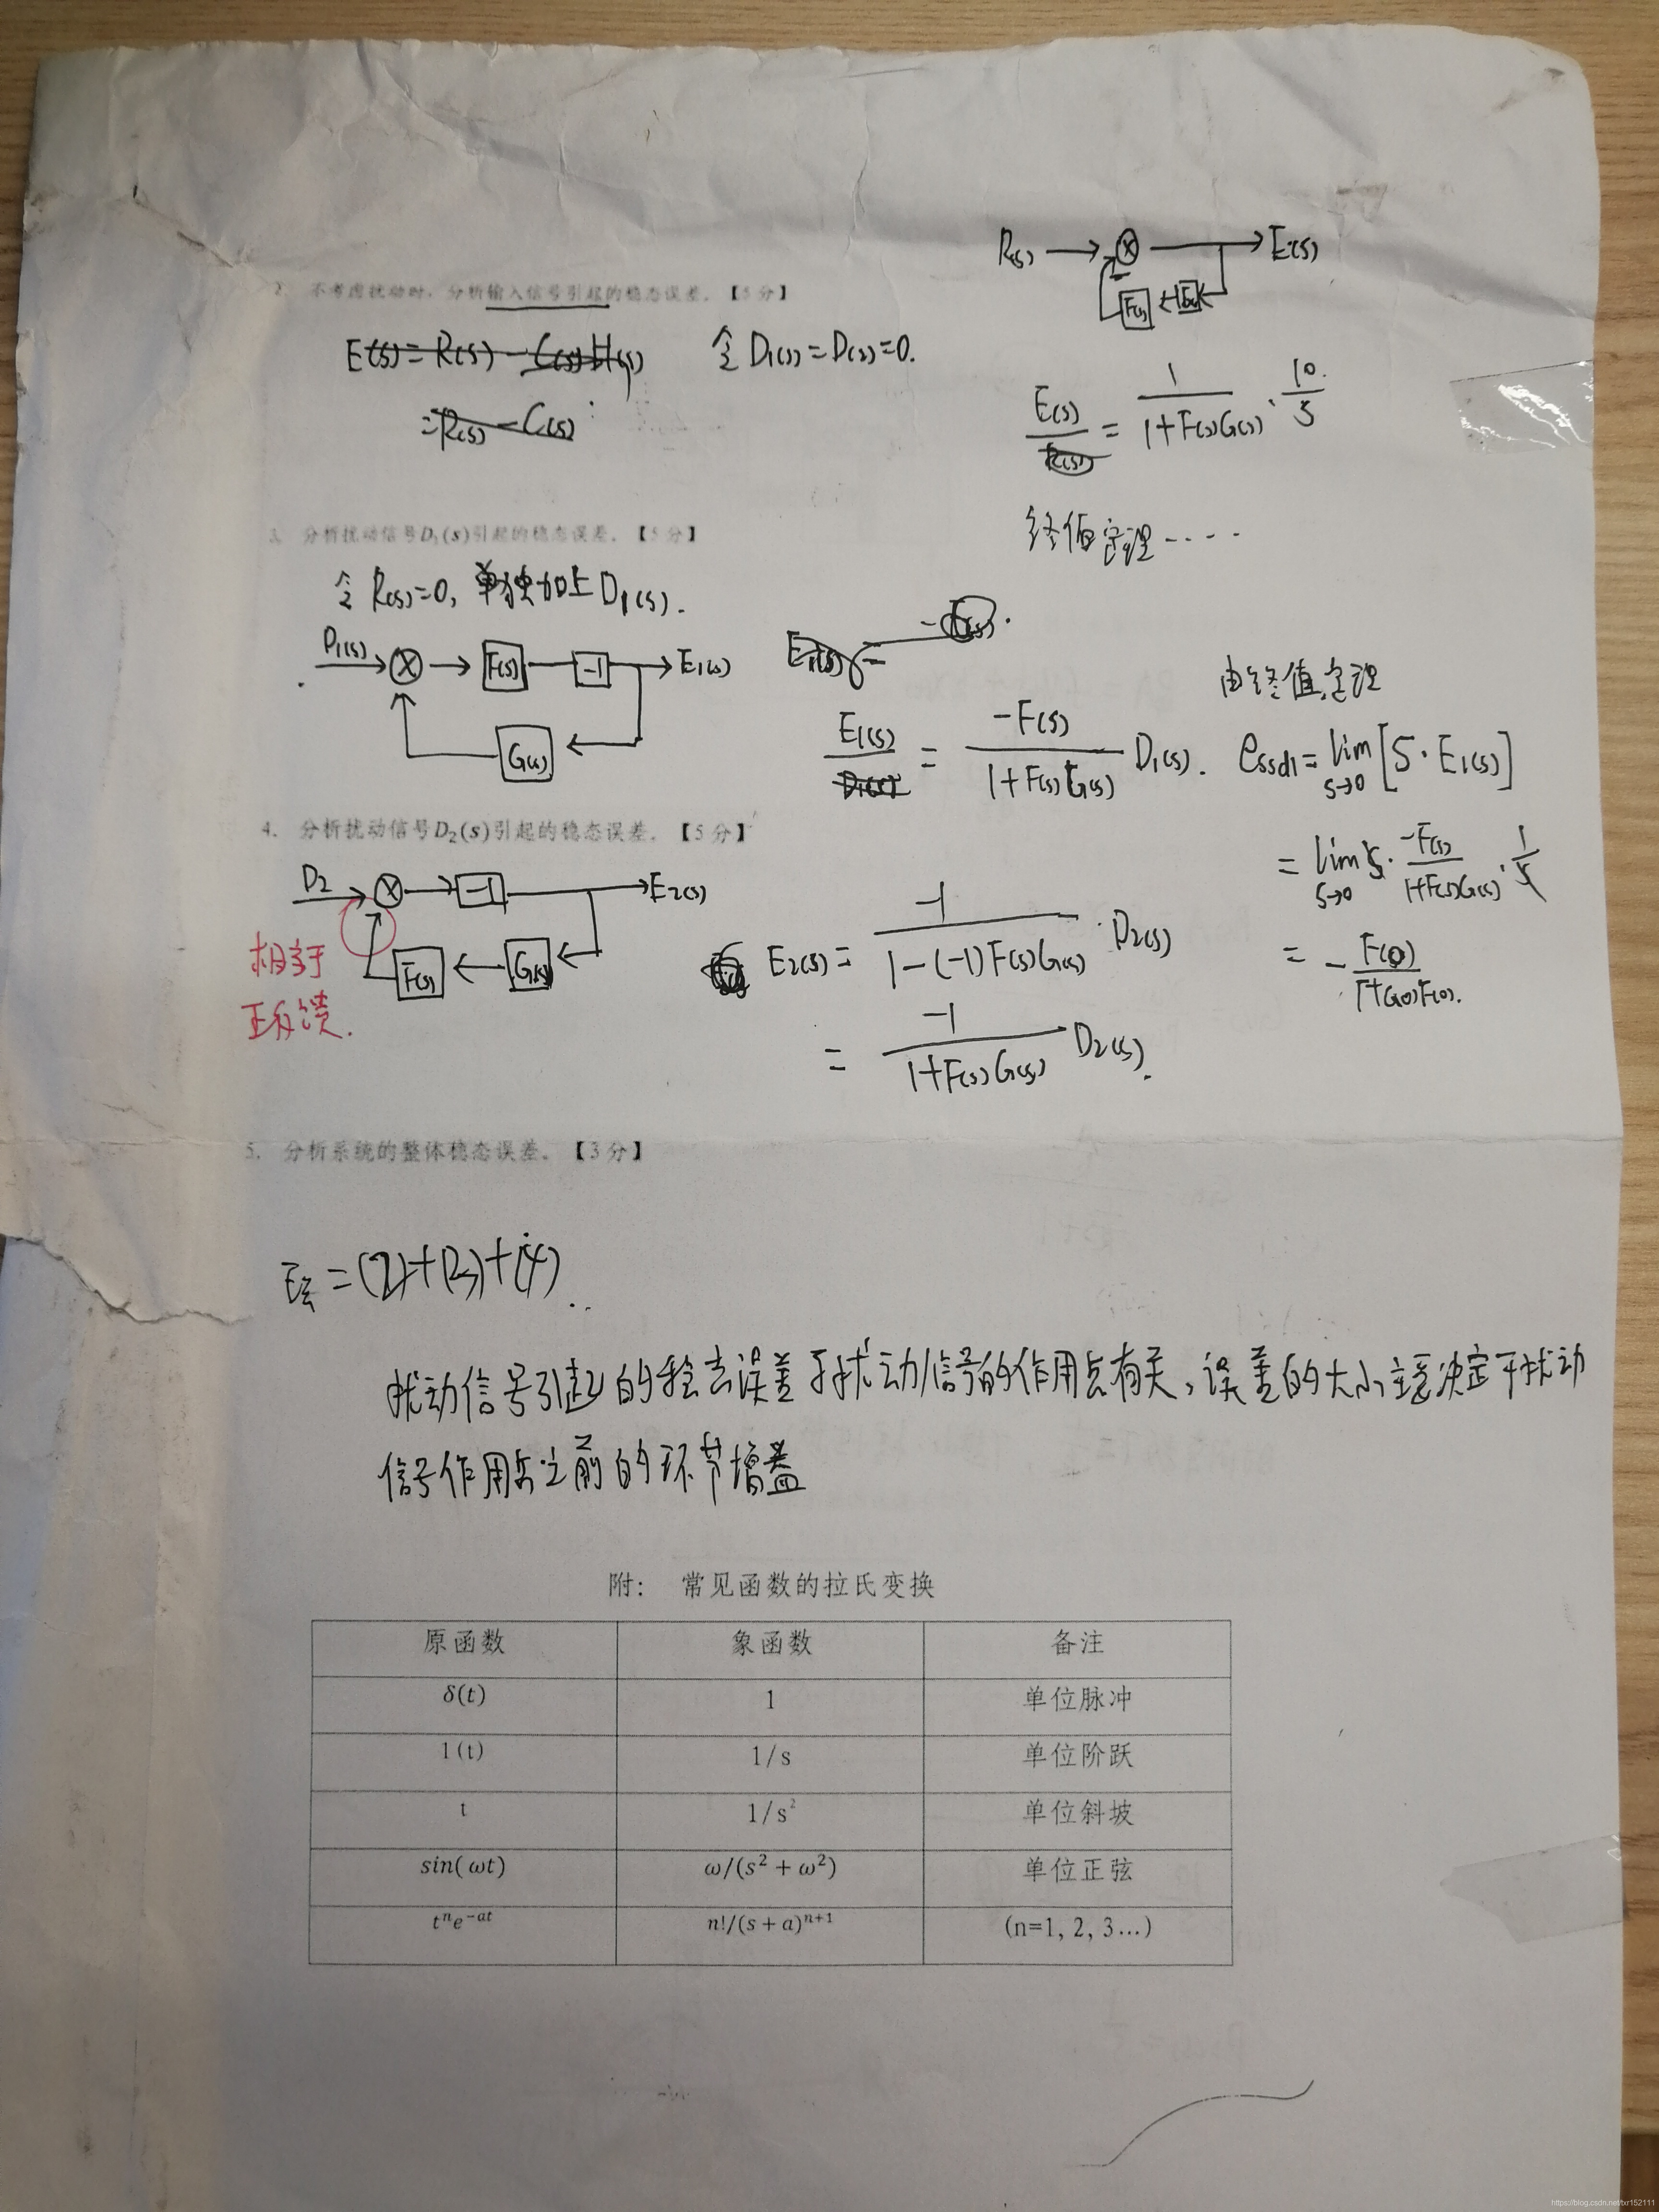 R(s)
E(s)
F(s)
2. 不考虑扰动时，分析输入信号引起的稳态误差。【5分】
E(s)=R(s)-C(s)H(s)
令D₁(s)=D(2)=0.
=R(s)-C(s)
E(s)/R(s) = 1/(1+F(s)G(s)) · 10/s
终值定理....
3. 分析扰动信号D₁(s)引起的稳态误差。【5分】
令R(s)=0, 单独加上D₁(s).
D₁(s)
F(s)
-1
E₁(s)
G(s)
E₁(s)=
由终值定理
E₁(s)/D₁(s) = -F(s)/(1+F(s)G(s)) D₁(s). essd1=lim s→0 [S·E₁(s)]
=lim s→0 s·-F(s)/(1+F(s)G(s))·1/s
=-F(0)/(1+G(0)F(0)).
4. 分析扰动信号D₂(s)引起的稳态误差。【5分】
D2
-1
E2(s)
F(s)
G(s)
相当于
正反馈.
E2(s)= -1/(1-(-1)F(s)G(s)) ·D2(s)
= -1/(1+F(s)G(s)) D2(s).
5. 分析系统的整体稳态误差。【3分】
=(2)+(3)+(4)..
扰动信号引起的稳态误差于扰动信号的作用点有关,误差的大小主要决定于扰动
信号作用点之前的环节增益
附: 常见函数的拉氏变换
原函数 象函数 备注
δ(t) 1 单位脉冲
1(t) 1/s 单位阶跃
t 1/s² 单位斜坡
sin(ωt) ω/(s²+ω²) 单位正弦
tⁿe⁻ᵃᵗ n!/(s+a)ⁿ⁺¹ (n=1, 2, 3...)
https://blog.csdn.net/txr152111